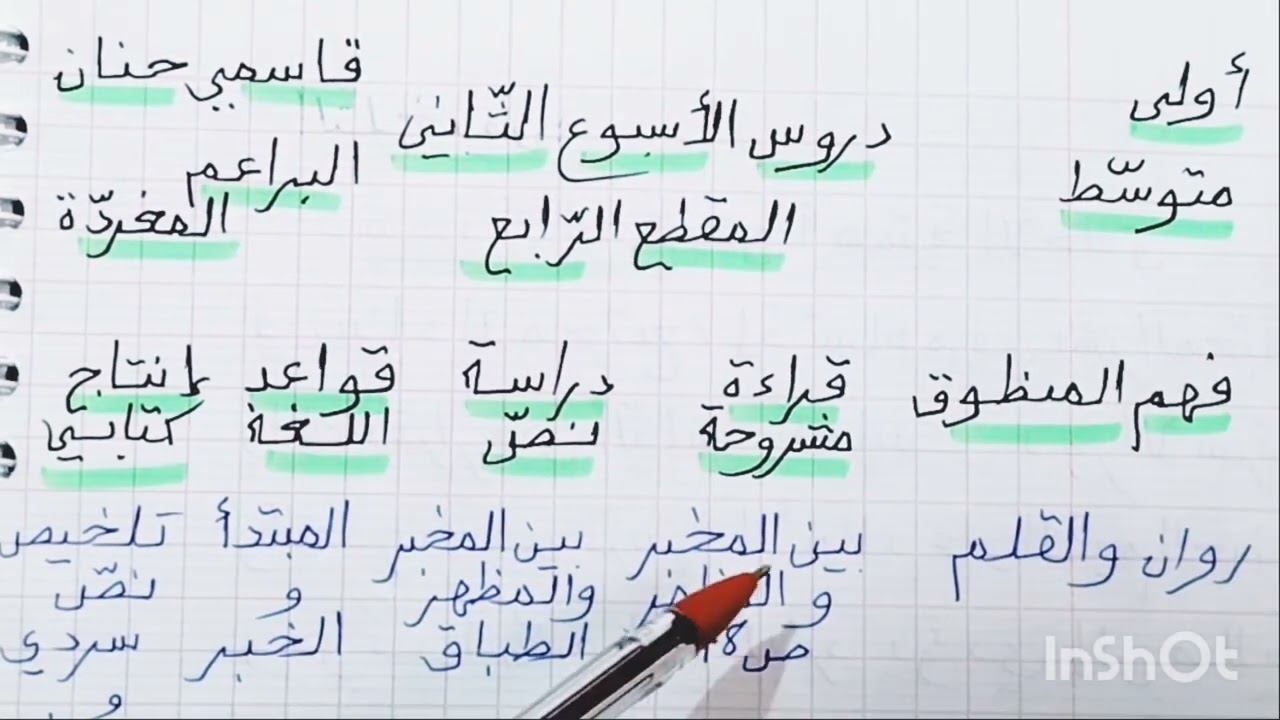 أولى
متوسّط
دروس الأسبوع الثّاني
المقطع الرّابع
قاسمي حنان
البراعم
المغرّدة
فهم المنطوق
قراءة
مشروحة
دراسة
نصّ
قواعد
اللغة
إنتاج
كتابي
روان والقلم
بين المخبر
و
ص
بين المخبر
والمظهر
الطباق
المبتدأ
و
الخبر
تلخيص
نصّ
سردي
InShOt